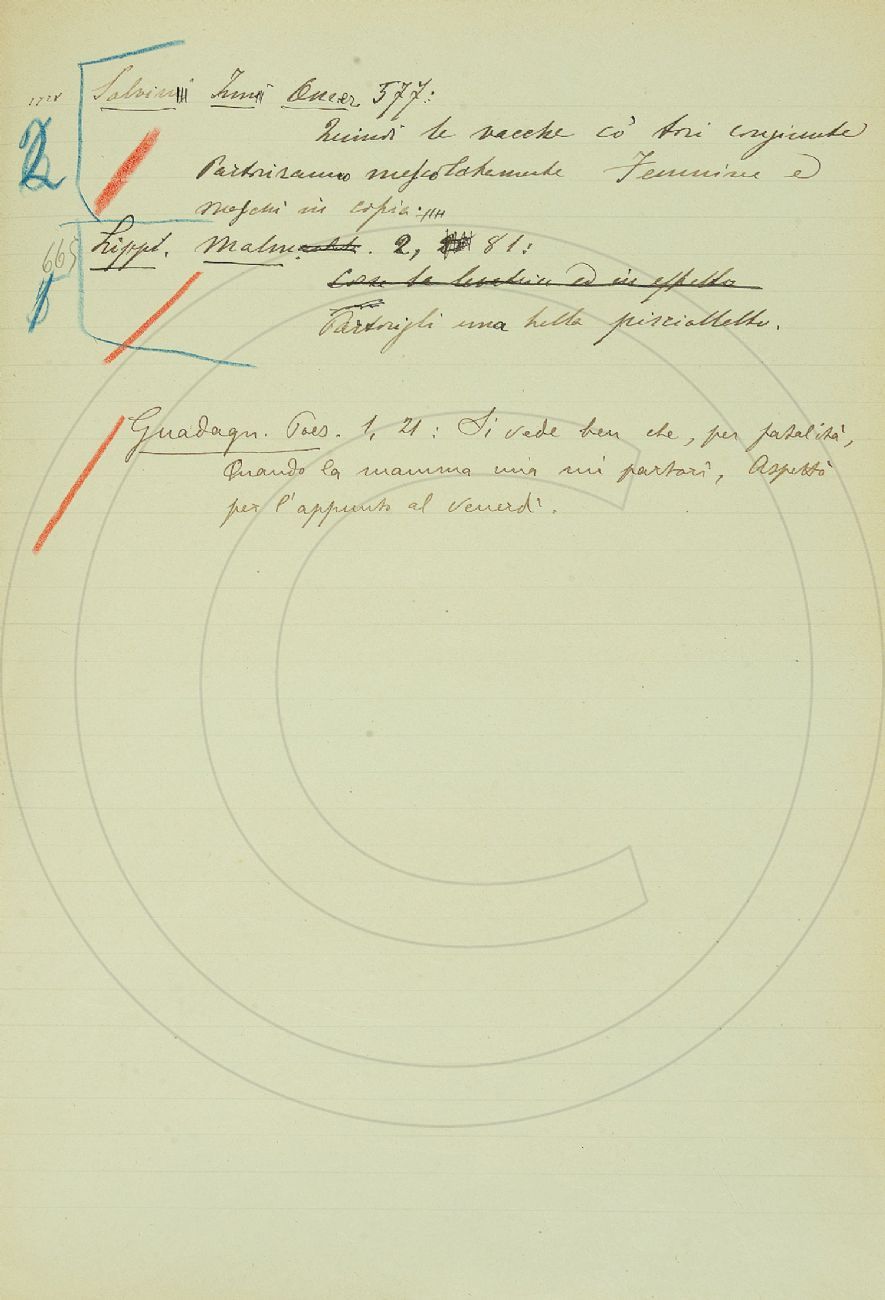 1728
Salvin. Inni Omer. 577:
2
Quindi le vacche co' tori congiunte
Partoriranno mescolatamente Femmine e
maschi in copia.
Lippi. Malm. 2, 81:
665
1
ed in effetto
Partorigli una bella pisciallletto.
Guadagn. Poes. 1, 21: Si vede ben che, per fatalità,
Quando la mamma mia mi partorì, Aspettò
per l'appunto al venerdì.